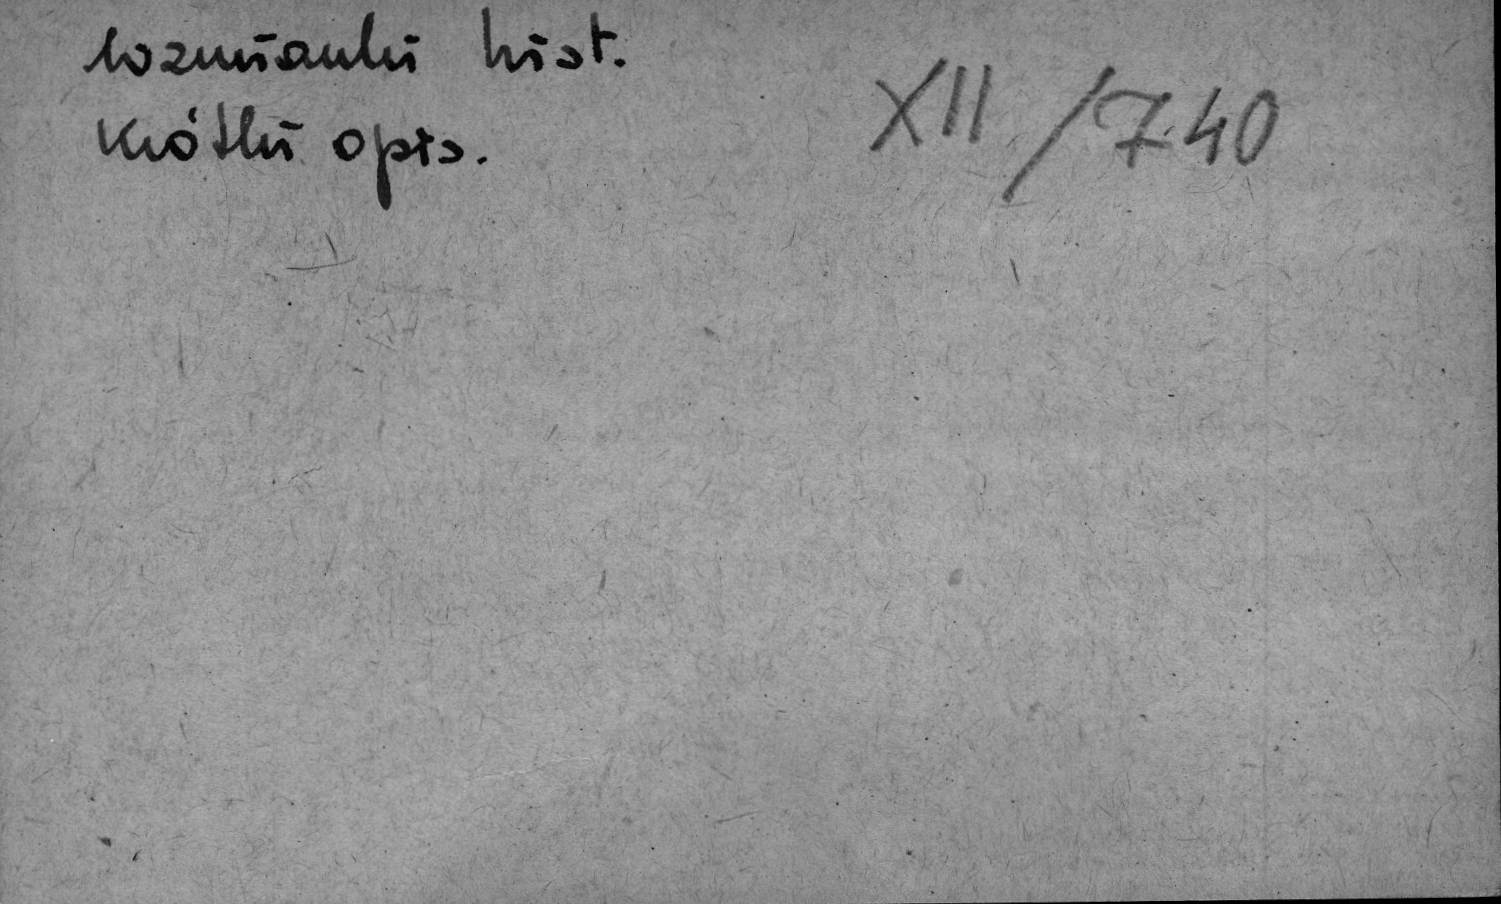 wzmianki hist.
XII/740
Krótki opis.